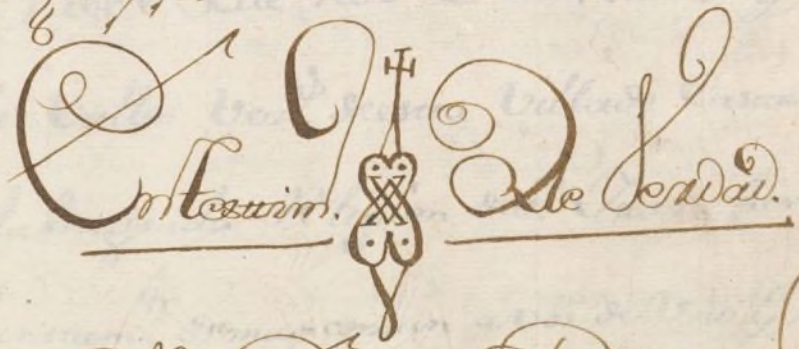 En testim. De Verdad.